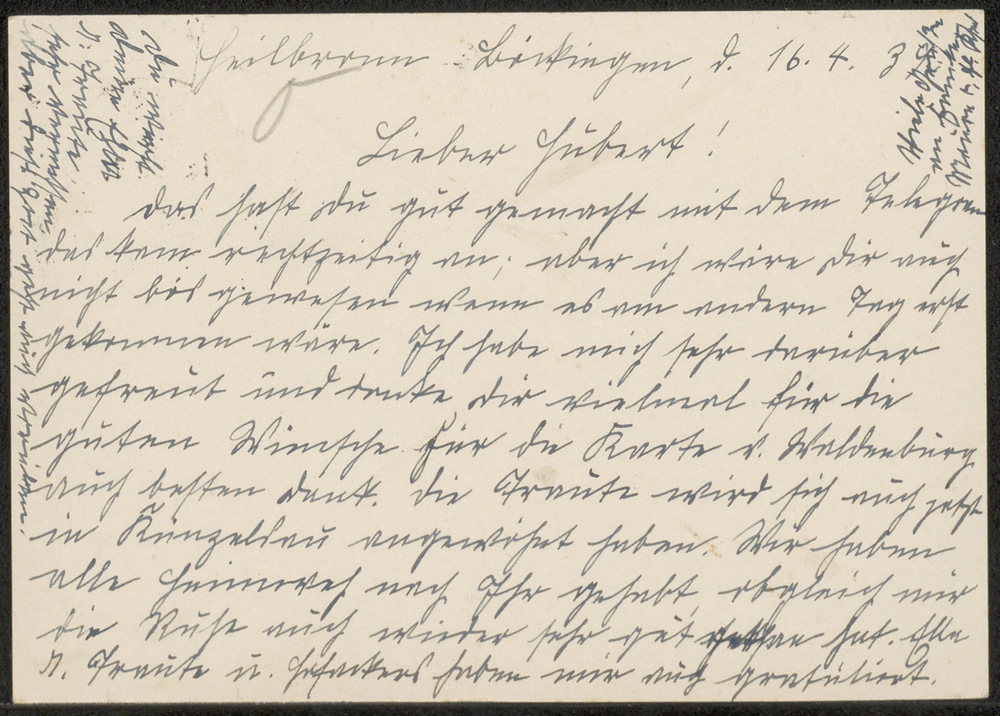 Heilbronn-Böckingen, d. 16. 4. 3
Lieber Hubert!
Das hast Du gut gemacht mit dem Telegram
das kam rechtzeitig an; aber ich wäre Dir auch
nicht bös gewesen wenn es am andern Tag erst
gekommen wäre. Ich habe mich sehr darüber
gefreut und danke Dir vielmal für die
guten Wünsche. Für die Karte v. Waldenburg
auch besten Dank. Die Traute wird sich auch jetzt
in Künzelsau angewöhnt haben. Wir haben
alle Heimweh nach Ihr gehabt, obgleich mir
die Ruhe auch wieder sehr gut getan hat. Ella
N. Traute u. Hofackers haben mir auch gratuliert.
Du wirst
Deine Ella
u. Traute
sehr vermissen,
aber diese Zeit geht auch vorüber.
Viele Grüße